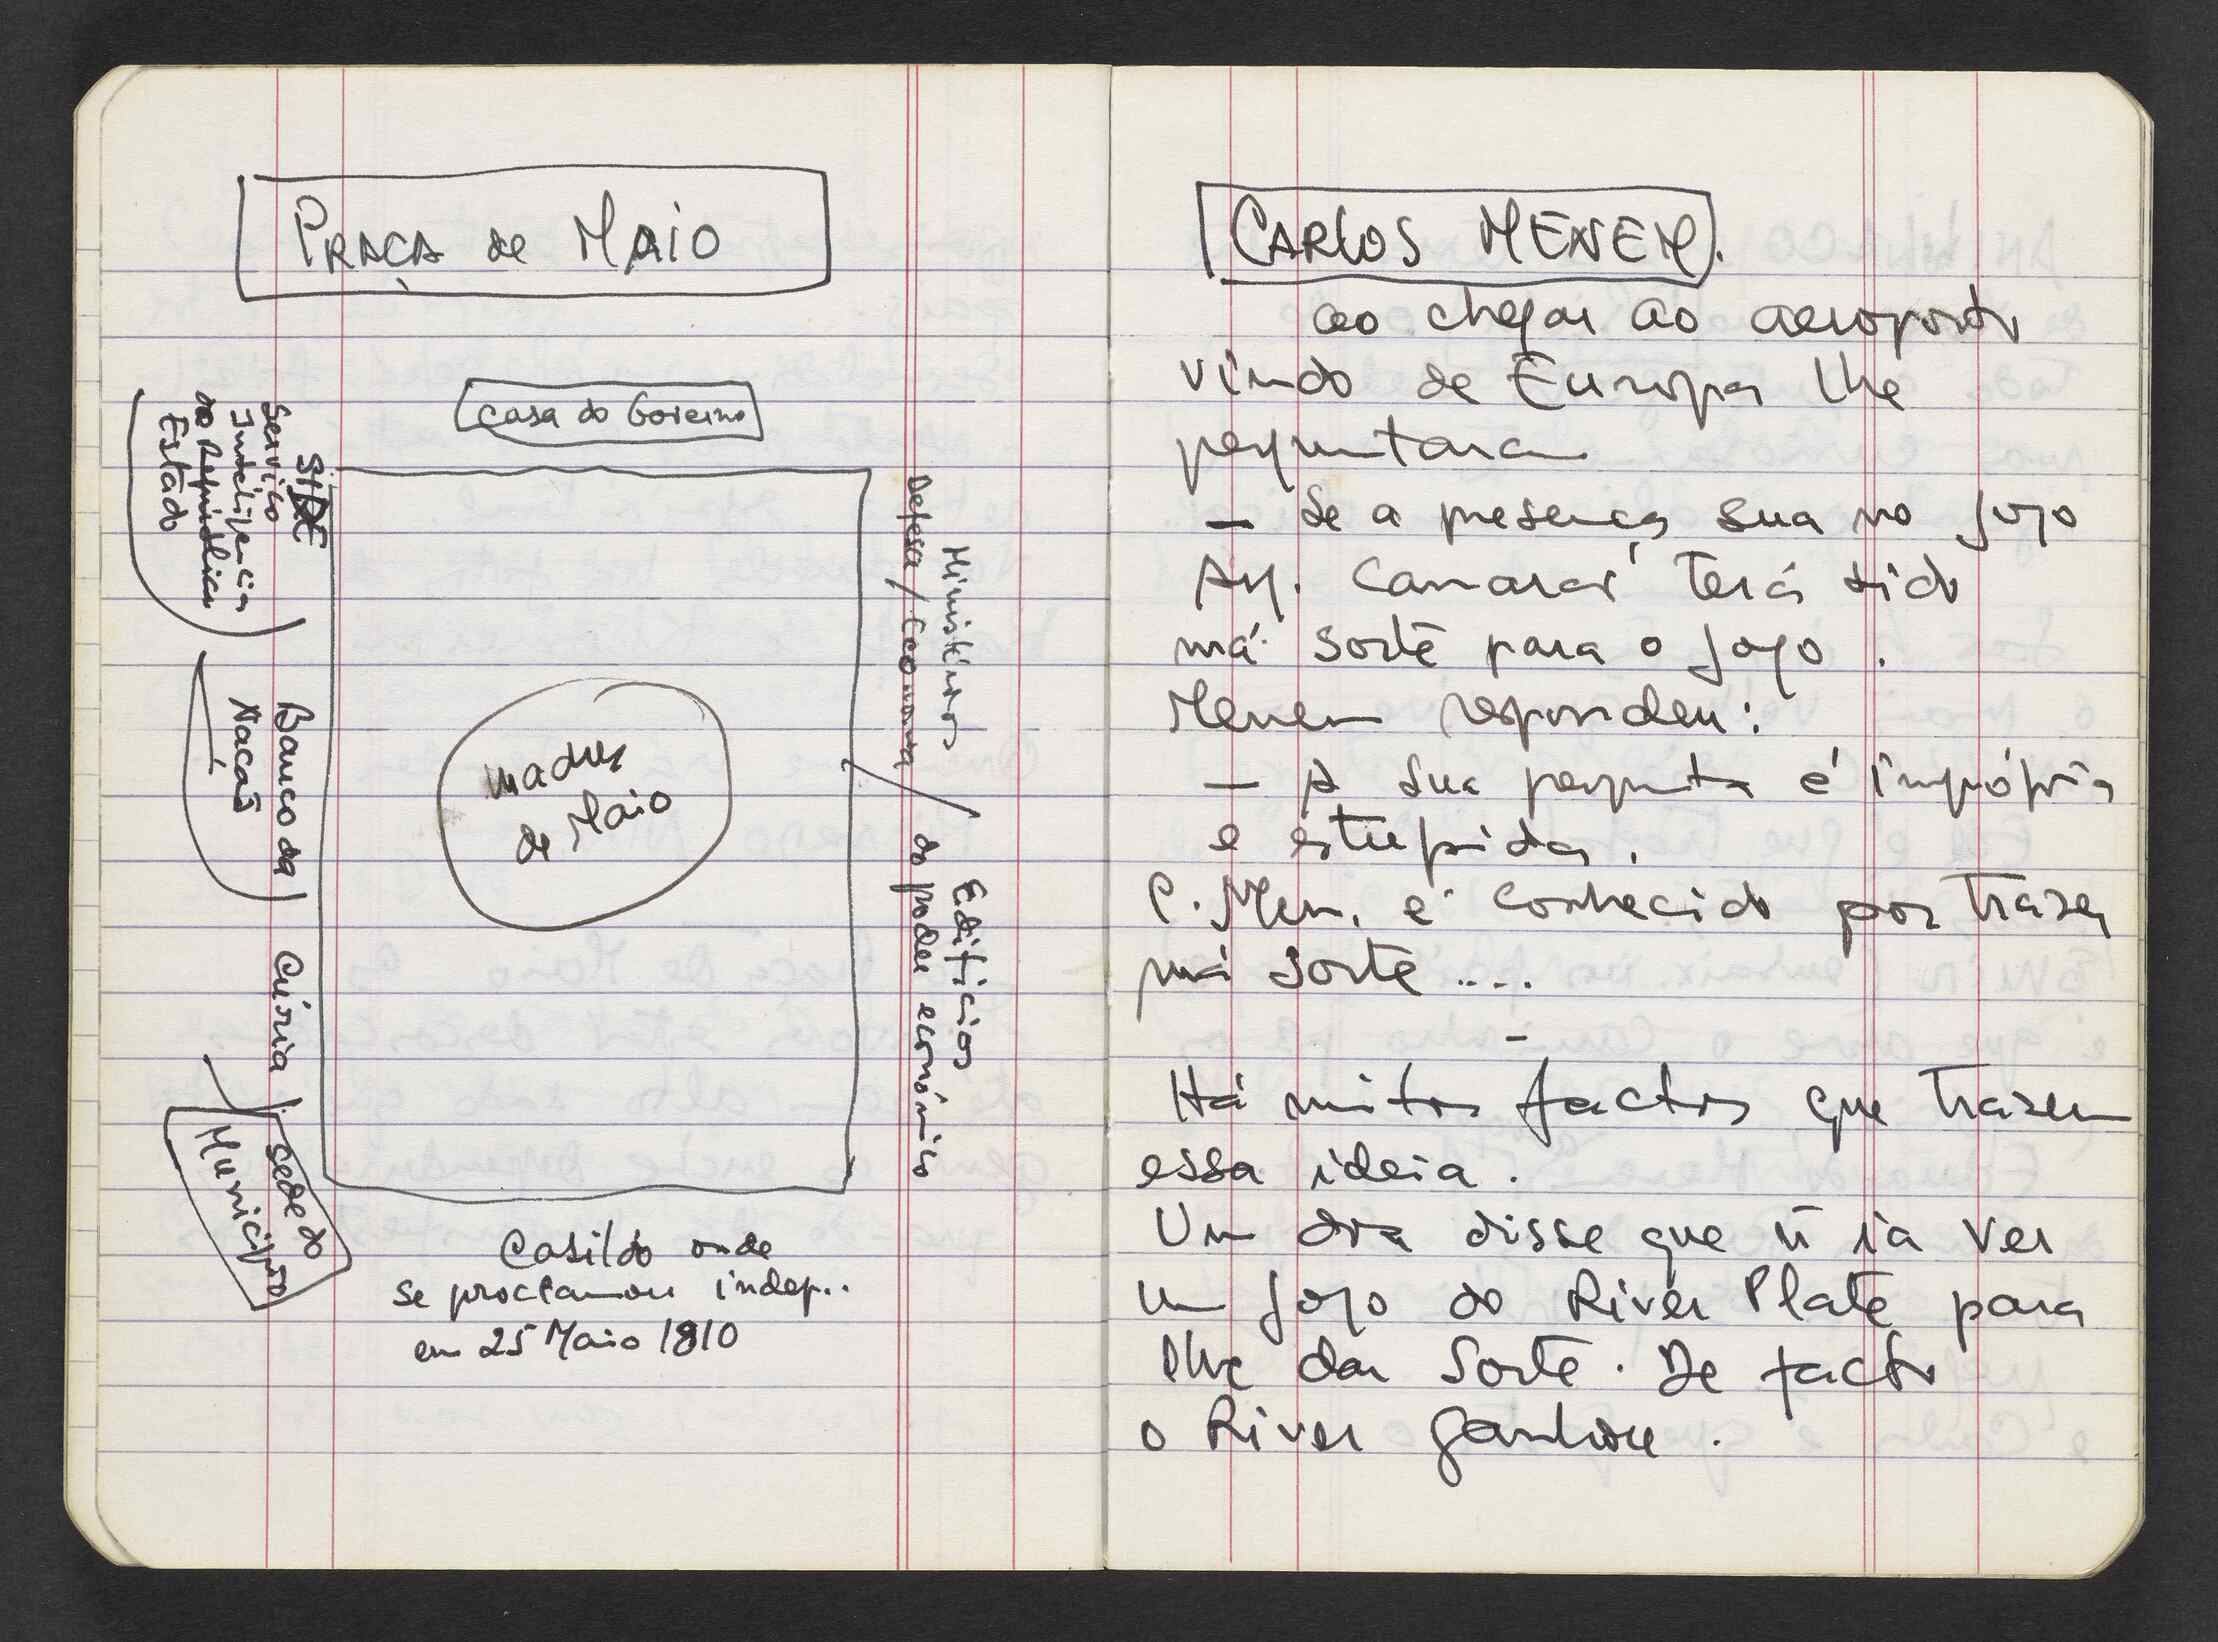 PRAÇA de MAIO
Casa do Governo
SIDE
Serviço
Inteligencia
do Republica
Estado
Banco da
Nação
Cúria
sede do
Município
madres
de Maio
Ministérios
Defesa / Economia
Edifícios
do poder económico
Casildo onde
se proclamou indep..
em 25 Maio 1810
CARLOS MENEM.
ao chegar ao aeroporto
vindo de Europa lhe
perguntaram
— Se a presença sua no jogo
Arg. Camarões terá sido
má sorte para o jogo.
Menem respondeu:
— A sua pergunta é imprópria
e estupida.
C. Men. é conhecido por trazer
má sorte....
–
Há muitos factos que trazem
essa ideia.
Um dia disse que ia ver
um jogo do River Plate para
lhe dar sorte. De facto
o River ganhou.